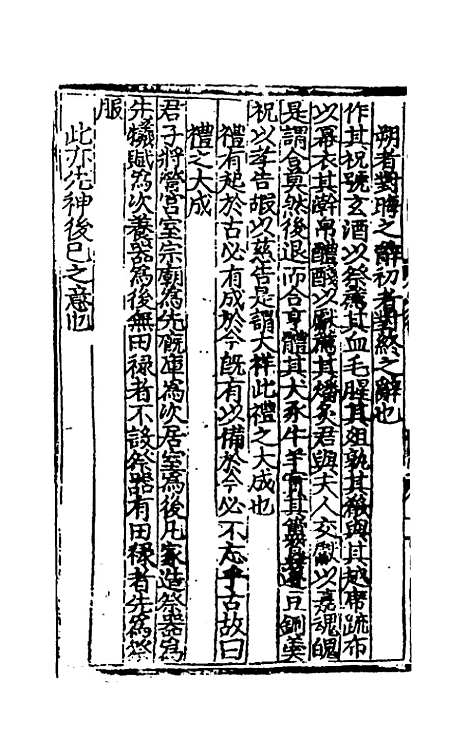 朔者對晦之辭初者對終之辭也
作其祝號玄酒以祭薦其血毛腥其俎孰其殽與其越席疏布
以冪衣其澣帛醴醆以獻薦其燔炙君與夫人交獻以嘉魂魄
是謂合莫然後退而合亨體其犬豕牛羊實其簠簋籩豆鉶羮
祝以孝告嘏以慈告是謂大祥此禮之大成也
禮有起於古必有成於今旣有以備於今必不忘乎古故曰
禮之大成
君子將營宮室宗廟為先廐庫為次居室為後凡家造祭器為
先犧賦為次養器為後無田祿者不設祭器有田祿者先為祭
服
此亦先神後己之意也